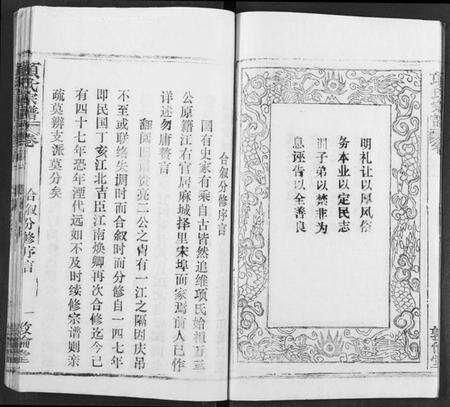 明礼让以厚风俗
务本业以定民志
训子弟以禁非为
息诬告以全善良
合叙分修序言
国有史家有乘自古皆然追维项氏始祖
公原籍江右官居麻城择里宋埠而家焉前人已作
详述勿庸赘言
二公之脊有一江之隔因庆吊
不至或联络失调时而合叙时而分修自一四七年
即民国丁亥江北吉臣江南焕卿再次合修迄今已
有四十七年恐年湮代远如不及时续修宗谱则亲
疏莫辨支派莫分矣
项氏宗谱
卷
合叙分修序言
一